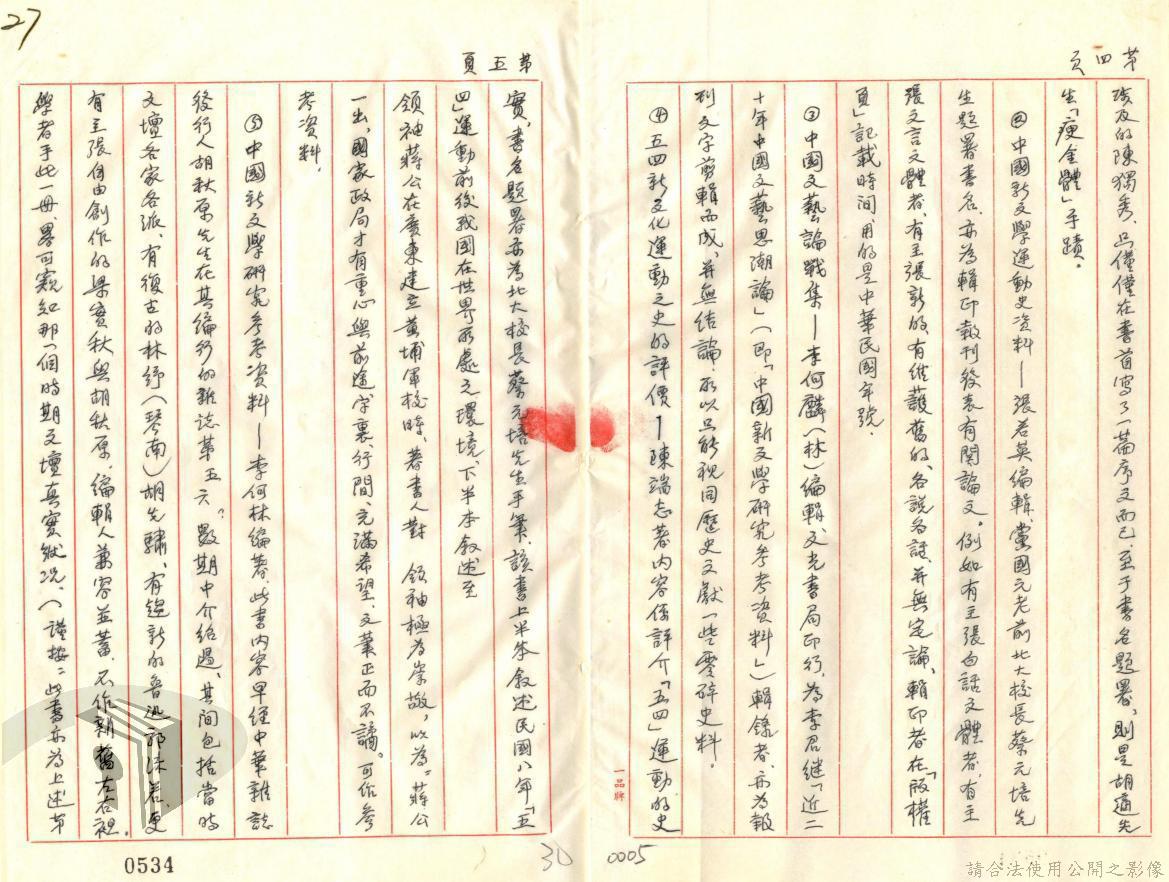 第四頁
埃及的陳獨秀，只僅僅在書首寫了一篇序文而已，至于書名題署，則是胡適先
生「瘦金體」手蹟。
②中國新文學運動史資料－張若英編輯，黨國元老前北大校長蔡元培先
生題署書名，亦為輯印報刊發表有関論文。例如有主張白話文體者，有主
張文言文體者，有主張新的，有維護舊的，各說各話，并無定論，輯印者在「版權
頁」記載時间，用的是中華民國年號．
③中國文藝論戰集－李何麟（林）編輯，文光書局印行，為李君继「近二
十年中國文藝思潮論」（即「中國新文學研究参考資料」）輯錄者，亦為報
刊文字剪輯而成，并無结論，所以只能視同歷史文献一些零碎史料。
④五四新文化運動之史的評價－陳端志著，内容係評介「五四」運動的史
一品牌
第五頁
實，書名題署亦為北大校長蔡元培先生手筆，該書上半本敘述民國八年「五
四」運動前後我國在世界所處之環境、下半本敘述至
領袖蔣公在廣東建立黃埔軍校時，著書人對 領袖極為崇敬，以為：蔣公
一出，國家政局才有重心與前途，字裏、行間、充滿希望，文筆正而不譎。可作参
考資料．
⑤中國新文學研究参考資料－李何林編著，此書内容早经中華雜誌
發行人胡秋原先生在其編行的雜誌第五六？數期中介绍過，其间包括當時
文壇各家各派，有復古的林紓（琴南）胡先驌、有趨新的魯迅郭沫若，更
有主張自由創作的梁實秋與胡秋原．編輯人兼容並蓄，不作新舊左右袒．
學者手此一冊，畧可窺知那一個時期文壇真實狀况。（謹按：此書亦為上述第
27
0534
30
0005
請合法使用公開之影像